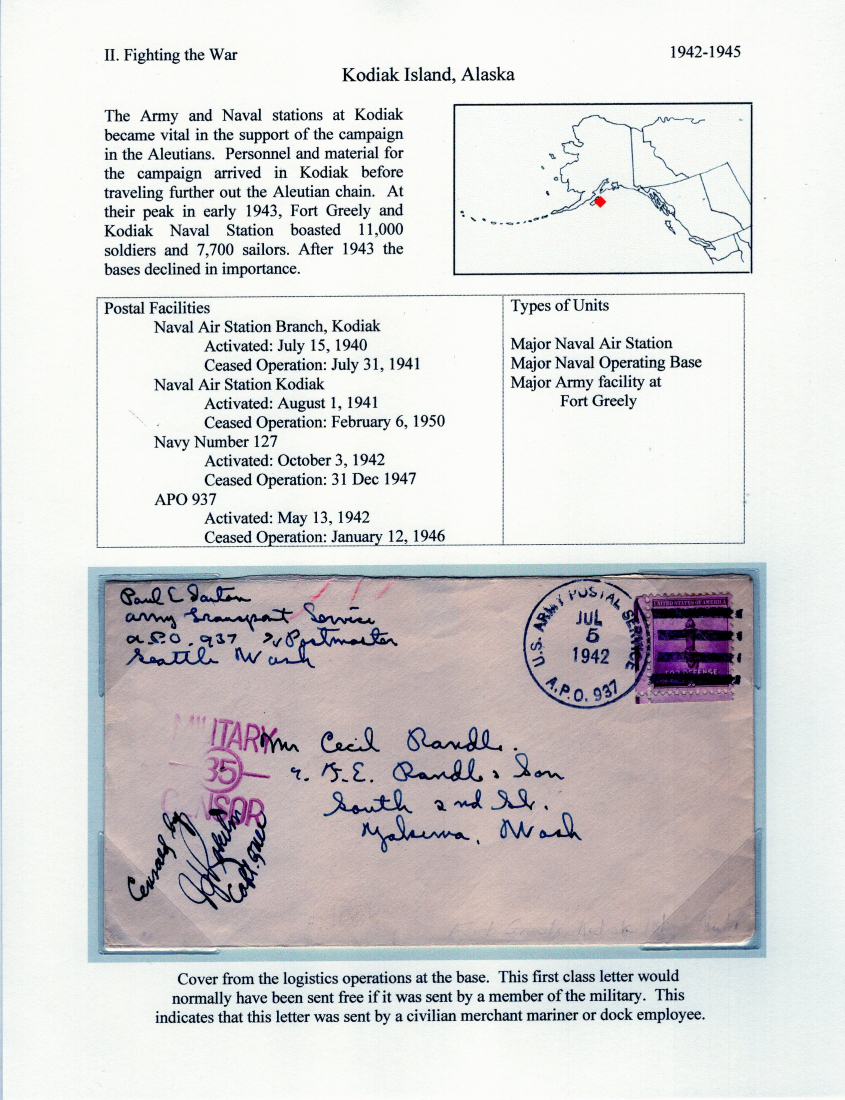 II. Fighting the War
1942-1945
Kodiak Island, Alaska
The Army and Naval stations at Kodiak
became vital in the support of the campaign
in the Aleutians. Personnel and material for
the campaign arrived in Kodiak before
traveling further out the Aleutian chain. At
their peak in early 1943, Fort Greely and
Kodiak Naval Station boasted 11,000
soldiers and 7,700 sailors. After 1943 the
bases declined in importance.
Postal Facilities
Naval Air Station Branch, Kodiak
Activated: July 15, 1940
Ceased Operation: July 31, 1941
Naval Air Station Kodiak
Activated: August 1, 1941
Ceased Operation: February 6, 1950
Navy Number 127
Activated: October 3, 1942
Ceased Operation: 31 Dec 1947
APO 937
Activated: May 13, 1942
Ceased Operation: January 12, 1946
Types of Units
Major Naval Air Station
Major Naval Operating Base
Major Army facility at
Fort Greely
Paul E
Army Transport Service
A.P.O. 937 Postmaster
Seattle Wash
U.S. ARMY POSTAL SERVICE
JUL
5
1942
A.P.O. 937
UNITED STATES OF AMERICA
FOR DEFENSE
MILITARY
35
CENSOR
Mr Cecil Randle.
Randle & Son
South 2nd St.
Yakima, Wash
Censored by
Capt. QMC
Cover from the logistics operations at the base. This first class letter would
normally have been sent free if it was sent by a member of the military. This
indicates that this letter was sent by a civilian merchant mariner or dock employee.